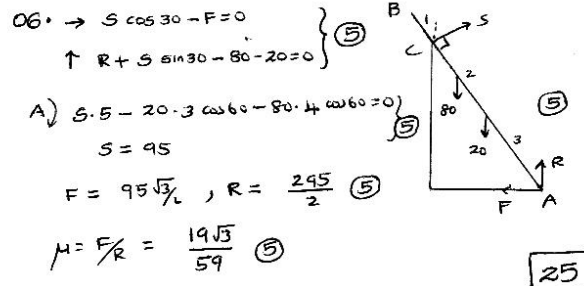 06. → S cos 30 - F = 0
↑ R + S sin 30 - 80 - 20 = 0 } ⑤
A) S.5 - 20.3 cos 60 - 80.4 cos 60 = 0 } ⑤
S = 95
F = 95√3/2 , R = 295/2 ⑤
μ = F/R = 19√3/59 ⑤
B
1
S
C
2
80
⑤
20
3
R
F
A
25